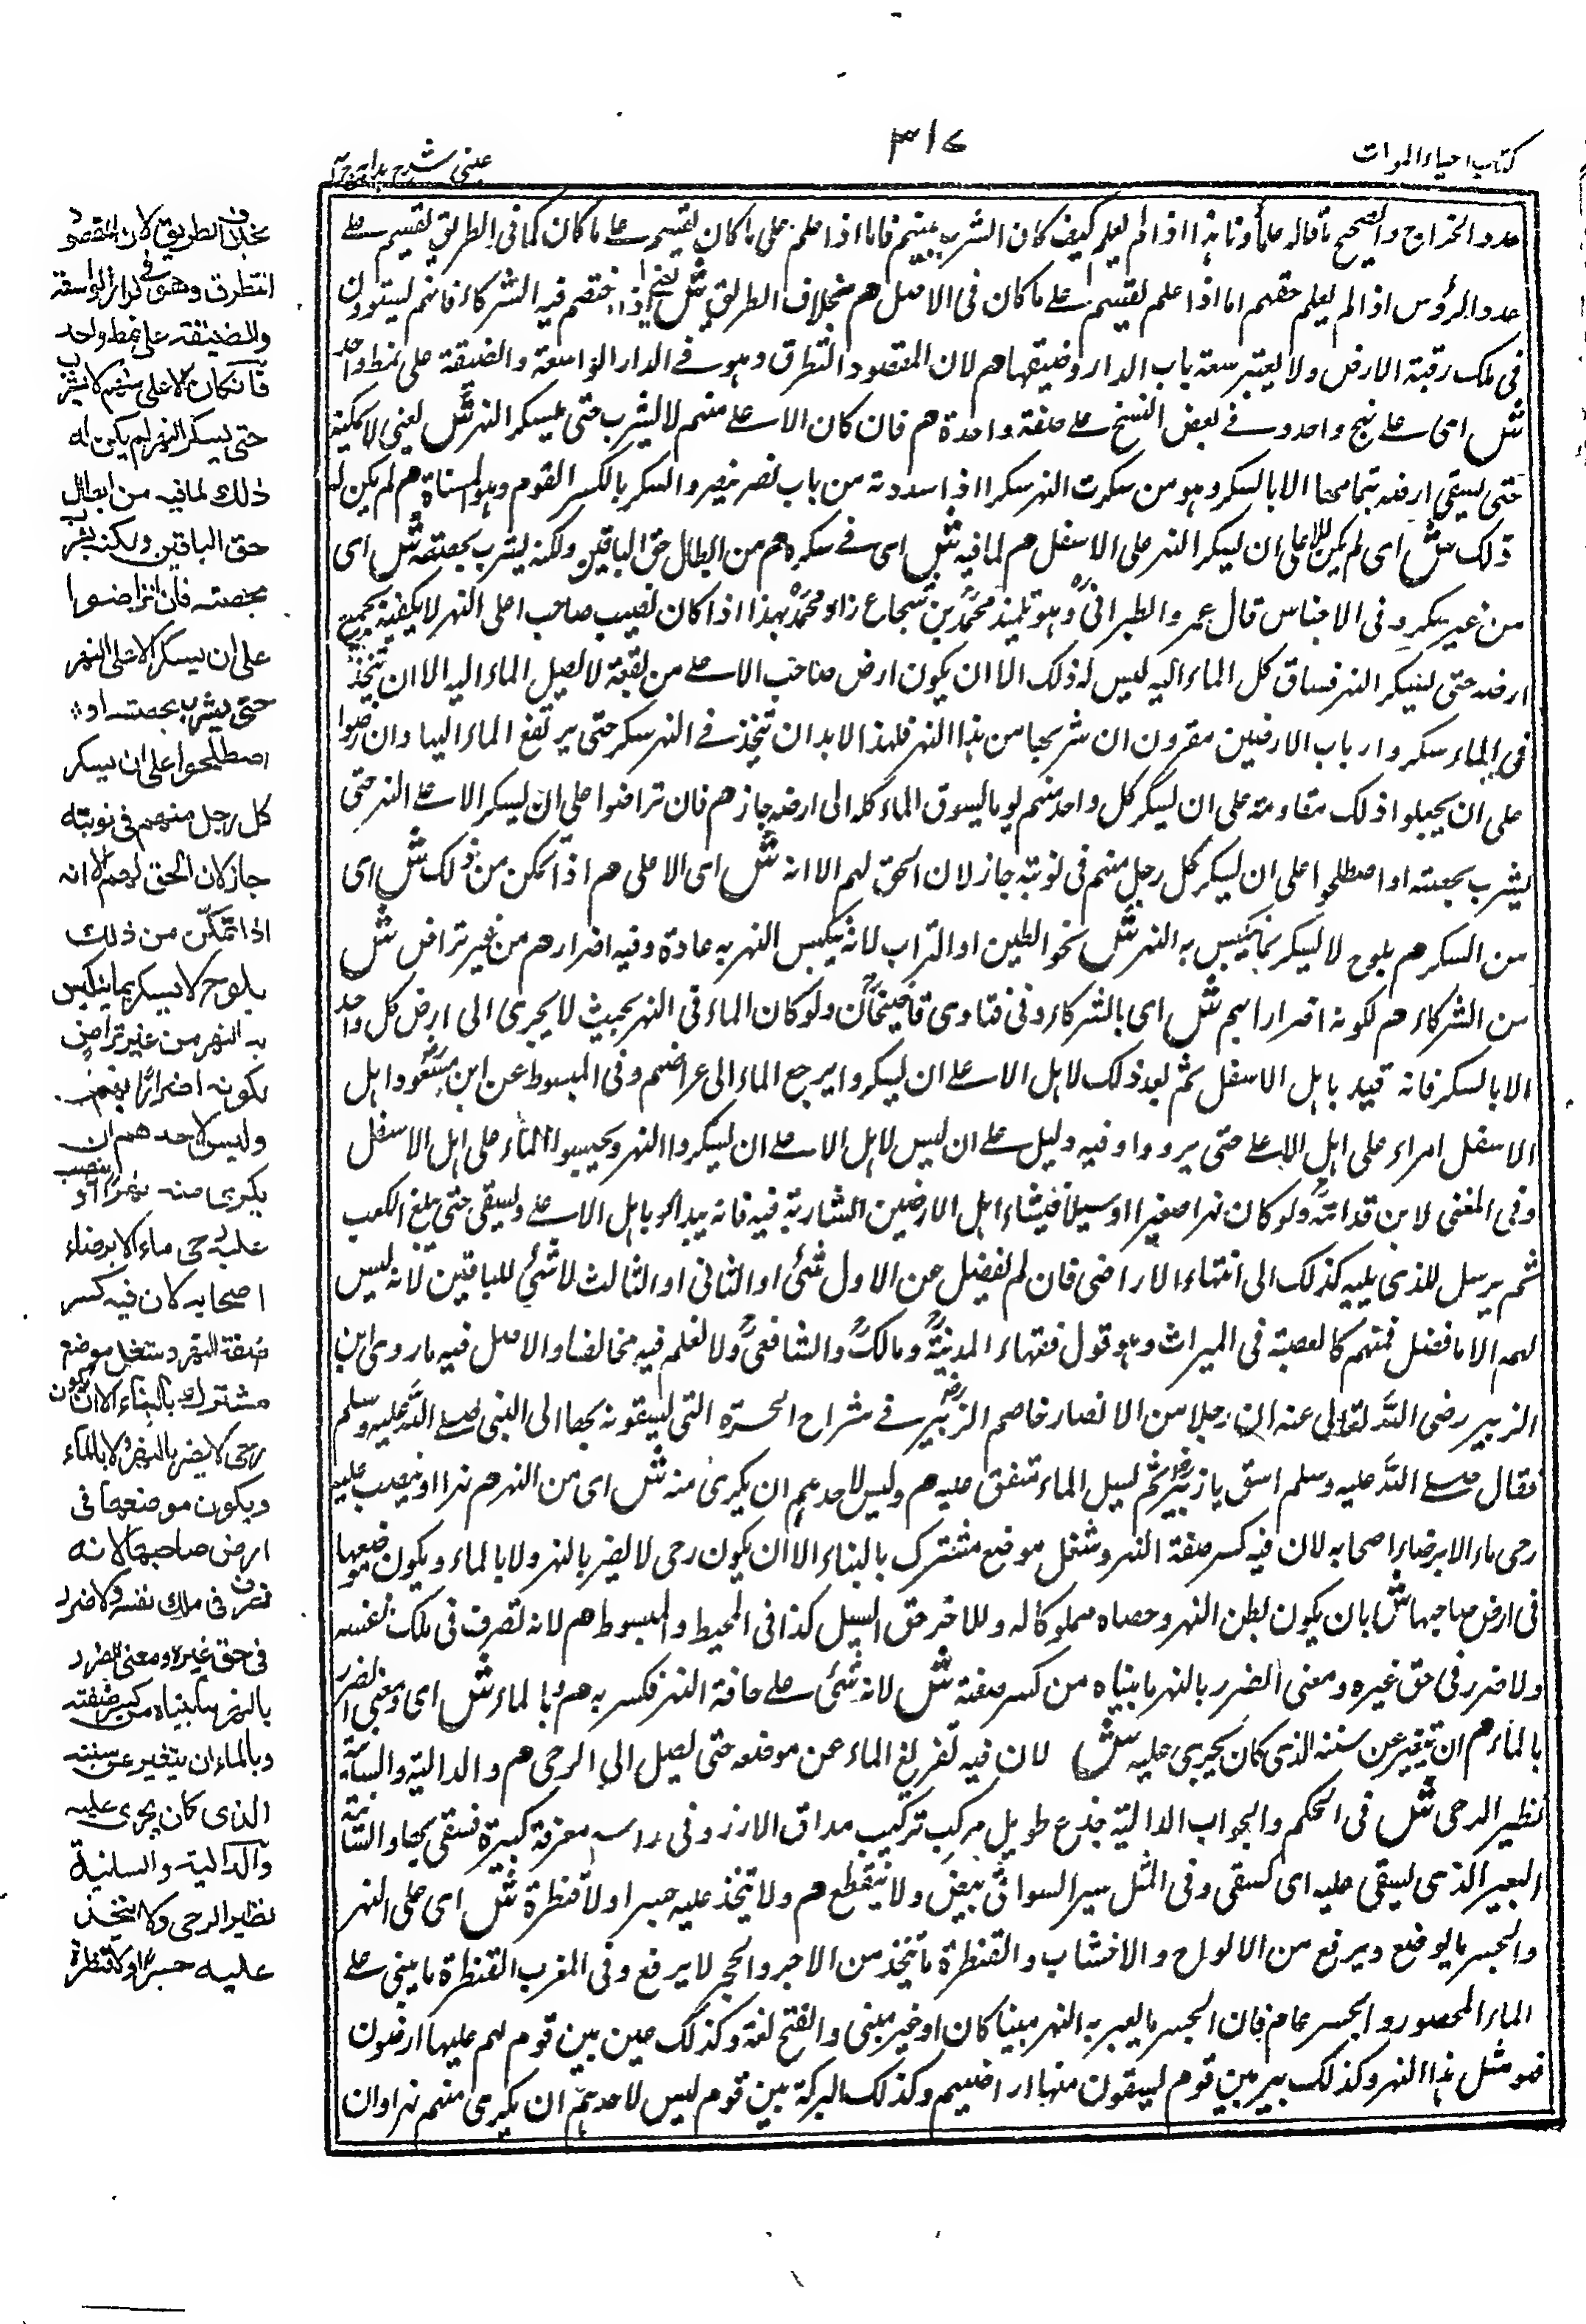 كتاب احياء الموات
٣١٧
عینی شرح ہدایہ ج ٤
عدد الخراج والصحیح ما قاله علماؤنا ہذا اذا لم یعلم کیف کان الشرب بینہم فاما اذا علم علی ما کان یقسم علے ما کان کما فی الطریق یقسم علے
عدد الرؤس اذا لم یعلم حقہم اما اذا علم یقسم علے ما کان فی الاصل هم بخلاف الطریق ش یعنی اذا اختصم فیہ الشرکاء فانہم یستوون
فی ملک رقبة الارض ولا یعتبر سعة باب الدار وضیقہا هم لان المقصود التطرق وہو فے الدار الواسعة والضیقة علی نمط واحد
ش ای علے نہج واحد وفے بعض النسخ علے صفة واحدة هم فان کان الاعلے منہم لا یشرب حتی یسکر النہر ش یعنی لا یمکنہ
حتی یسقی ارضہ بتمامہا الا بالسکر وہو من سکرت النہر سکرا اذا سددتہ من باب نصر ینصر والسکر بالکسر القوم وہو المسناة هم لم یکن لہ
ذلک ش ای لم یکن للاعلی ان یسکر النہر علی الاسفل هم لما فیہ ش ای فے سکرہ هم من ابطال حق الباقین ولکنہ یشرب بحصتہ ش ای
من غیر سکر وفی الاجناس قال عمرو الطبرانی وہو تلمیذ محمد بن شجاع زاد محمد بہذا اذا کان نصیب صاحب اعلی النہر لا یکفیہ بجمیع
ارضہ حتی یسکر النہر فساق کل الماء الیہ لیس لہ ذلک الا ان یکون ارض صاحب الاعلے من بقعة لا یصل الماء الیہ الا ان یتخذ
فی الماء سکر وارباب الارضین مقرون ان شربہا من ہذا النہر فلہذا لا بد ان یتخذ فے النہر سکر حتی یرتفع الماء الیہا وان رضوا
علی ان یجعلوا ذلک مقاومة علی ان یسکر کل واحد منہم یوما لیسوق الماء کلہ الی ارضہ جاز هم فان تراضوا علی ان یسکر الاعلے النہر حتی
یشرب بحصتہ او اصطلحوا علی ان یسکر کل رجل منہم فی نوبتہ جاز لان الحق لہم الا انہ ش ای الاعلی هم اذا تمکن من ذلک ش ای
من السکر هم بلوح لا یسکر بما ینکبس بہ النہر ش نحو الطین او التراب لانہ یکبس النہر بہ عادة وفیہ اضرار هم من غیر تراض ش
من الشرکاء هم لکونہ اضرارا بہم ش ای بالشرکاء وفی فتاوی قاضیخان ولو کان الماء فی النہر بحیث لا یجری الی ارض کل واحد
الا بالسکر فانہ یبدء باہل الاسفل ثم بعد ذلک لاہل الاعلے ان یسکروا یرجع الماء الی عراضہم وفی المبسوط عن ابن مسعود اہل
الاسفل امراء علی اہل الاعلے حتی یرووا وفیہ دلیل علے ان لیس لاہل الاعلے ان یسکروا النہر ویحبسوا الماء علی اہل الاسفل
وفی المغنی لابن قدامة ولو کان نہرا صغیرا او سیلا فیشاء اہل الارضین الشاربة فیہ فانہ یبدأ باہل الاعلے ویسقی حتی یبلغ الکعب
ثم یرسل للذی یلیہ کذلک الی انتہاء الاراضی فان لم یفضل عن الاول شئی او الثانی او الثالث لا شئی للباقین لانہ لیس
لہم الا ما فضل فہم کالعصبة فی المیراث وہو قول فقہاء المدینة ومالک والشافعی ولا نعلم فیہ مخالفا والاصل فیہ ما روی ابن
الزبیر رضی اللہ تعالی عنہ ان رجلا من الانصار خاصم الزبیر فے شراج الحرّة التی یسقونہ بہا الی النبی صلے اللہ علیہ وسلم
فقال صلے اللہ علیہ وسلم اسق یا زبیر ثم یسیل الماء متفق علیہ هم ولیس لاحدہم ان یکری منہ ش ای من النہر هم نہرا او ینصب علیہ
رحی ماء الا برضاء اصحابہ لان فیہ کسر ضفة النہر وشغل موضع مشترک بالبناء الا ان یکون رحی لا یضر بالنہر ولا بالماء ویکون موضعہا
فی ارض صاحبہا ش بان یکون بطن النہر وحصاہ مملوکا لہ وللاخر حق السیل کذا فی المحیط والمبسوط هم لانہ تصرف فی ملک نفسہ
ولا ضرر فی حق غیرہ ومعنی الضرر بالنہر ما بیناہ من کسر ضفتہ ش لانہ شئی علے حافة النہر فکسر بہ هم وبالماء ش ای ومعنی الضرر
بالماء هم ان یتغیر عن سننہ الذی کان یجری علیہ ش لان فیہ تفریغ الماء عن موضعہ حتی یصل الی الرحی هم والدالیة والسانیة
نظیر الرحی ش فی الحکم والجواب الدالیة جذع طویل یرکب ترکیب مداق الارز وفی راسہ مغرفة کبیرة فسقی بہا والسانیة
البعیر الذی یسقی علیہ ای یستقی وفی المثل سیر السوانی سفر لا ینقطع هم ولا یتخذ علیہ جسرا ولا قنطرة ش ای علی النہر
والجسر ما یوضع ویرفع من الالواح والاخشاب والقنطرة ما یتخذ من الاجر والحجر لا یرفع وفی المغرب القنطرة ما یبنی علے
الماء المحصور والجسر عام فان الجسر ما یعبر بہ النہر مبنیا کان او غیر مبنی والفتح لغة وکذلک عین بین قوم لہم علیہا ارضون
فہو مثل ہذا النہر وکذلک بیر بین قوم یسقون منہا اراضیہم وکذلک البرکة بین قوم لیس لاحدہم ان یکری منہم نہرا وان
بخلاف الطریق لان المقصود
التطرق وهو فی الدار الواسعة
والضیقة علی نمط واحد
فان كان الاعلى منهم لا يشرب
حتى يسكر النهر لم يكن له
ذلك لما فيه من ابطال
حق الباقين ولكنه يشرب
بحصته فان تراضوا
على ان يسكر الاعلى النهر
حتى يشرب بحصته او
اصطلحوا على ان يسكر
كل رجل منهم فى نوبته
جاز لان الحق لهم الا انه
اذا تمكن من ذلك
بلوح لا يسكر بما ينكبس
به النهر من غير تراض
لكونه اضرارًا بهم
وليس لاحدهم ان
يكرى منه نهرًا او ينصب
عليه رحى ماء الا برضاء
اصحابه لان فيه كسر
ضفة النهر وشغل موضع
مشترك بالبناء الا ان يكون
رحى لا يضر بالنهر ولا بالماء
ويكون موضعها فى
ارض صاحبها لانه
تصرف فى ملك نفسه ولا ضرر
فى حق غيره ومعنى الضرر
بالنهر ما بيناه من كسر ضفته
وبالماء ان يتغير عن سننه
الذى كان يجرى عليه
والدالية والسانية
نظير الرحى ولا يتخذ
عليه جسرًا ولا قنطرة